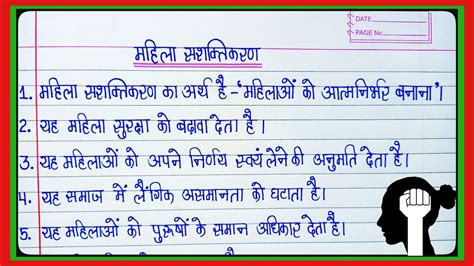 DATE
PAGE No
महिला सशक्तिकरण
1. महिला सशक्तिकरण का अर्थ है -'महिलाओं को आत्मनिर्भर बनाना'।
2. यह महिला सुरक्षा को बढ़ावा देता है।
3. यह महिलाओं को अपने निर्णय स्वयं लेने की अनुमति देता है।
4. यह समाज में लैंगिक असमानता को घटाता है।
5. यह महिलाओं को पुरूषों के समान अधिकार देता है।